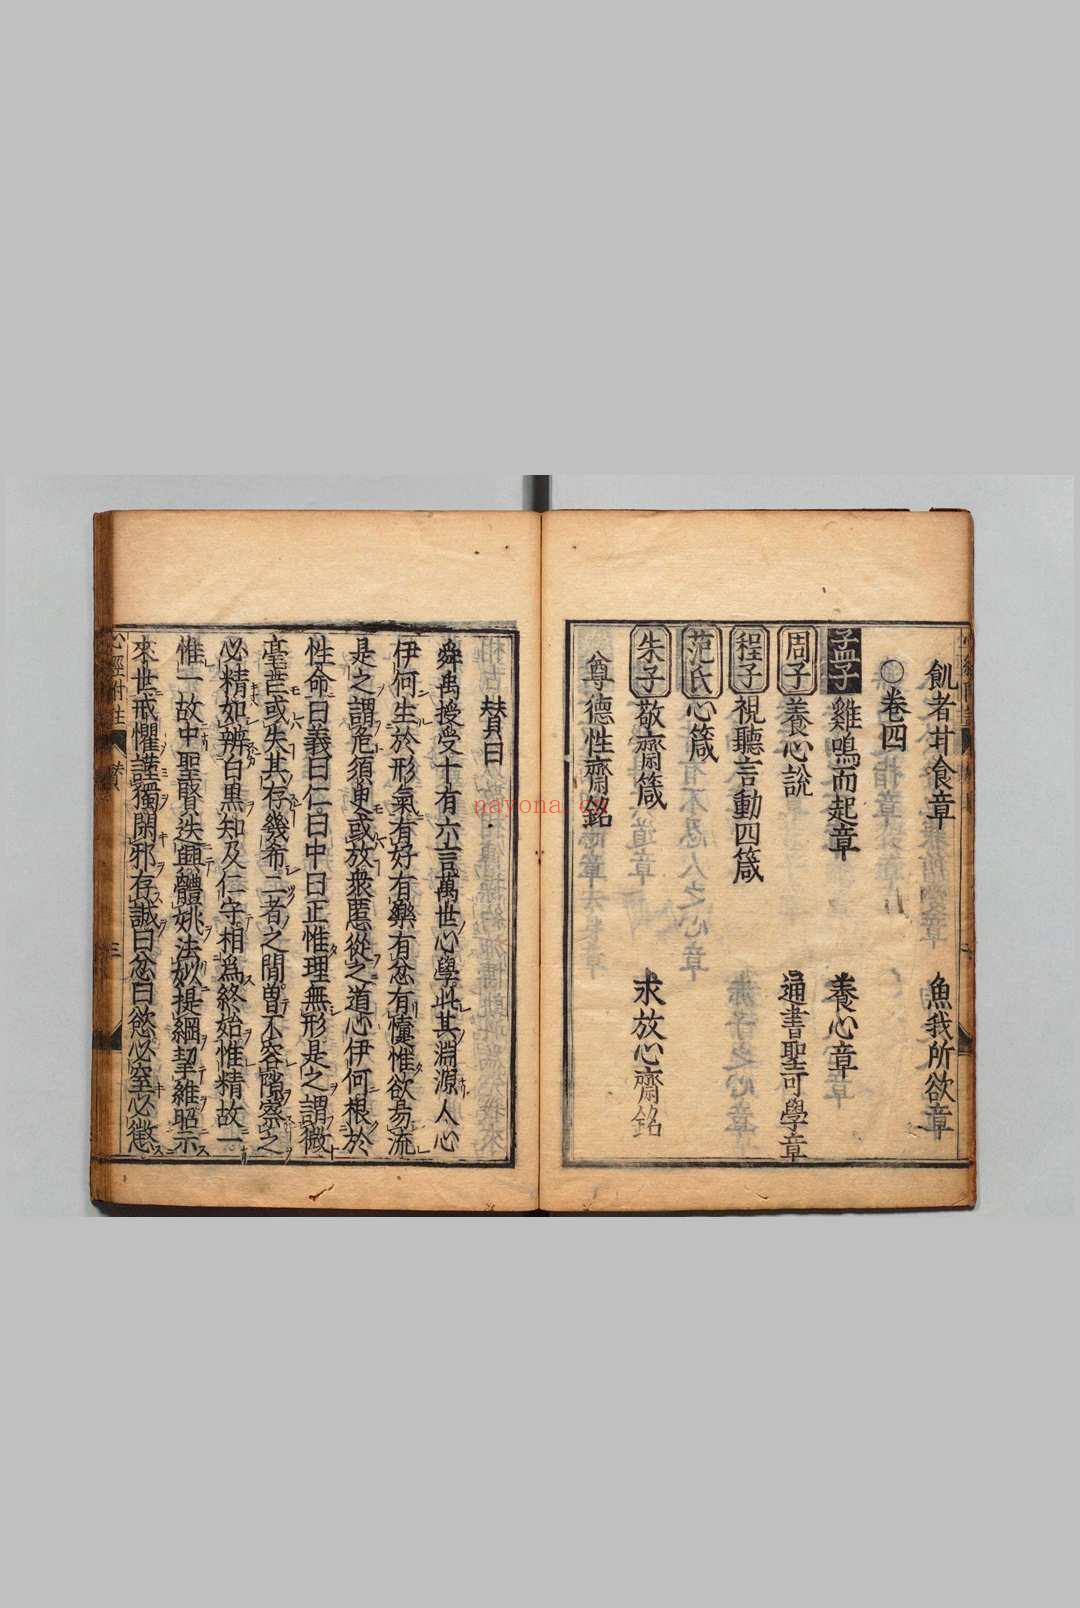 飢者甘食章　魚我所欲章
○卷四
孟子　雞鳴而起章　養心章
周子　養心說　通書聖可學章
程子　視聽言動四箴
范氏　心箴
朱子　敬齋箴　求放心齋銘
尊德性齋銘
贊曰
舜禹授受十有六言萬世心學此其淵源人心
伊何生於形氣有好有樂有忿有懥惟欲易流
是之謂危須臾或放衆慝從之道心伊何根於
性命曰義曰仁曰中曰正惟理無形是之謂微
毫芒或失其存幾希二者之間曽不容隙察之
必精如辨白黒知及仁守相爲終始惟精故一
惟一故中聖賢迭興體姚法姒提綱挈維昭示
來世戒懼謹獨閑邪存誠曰忿曰慾必窒必懲
心經附註　贊　三
nayona.cn